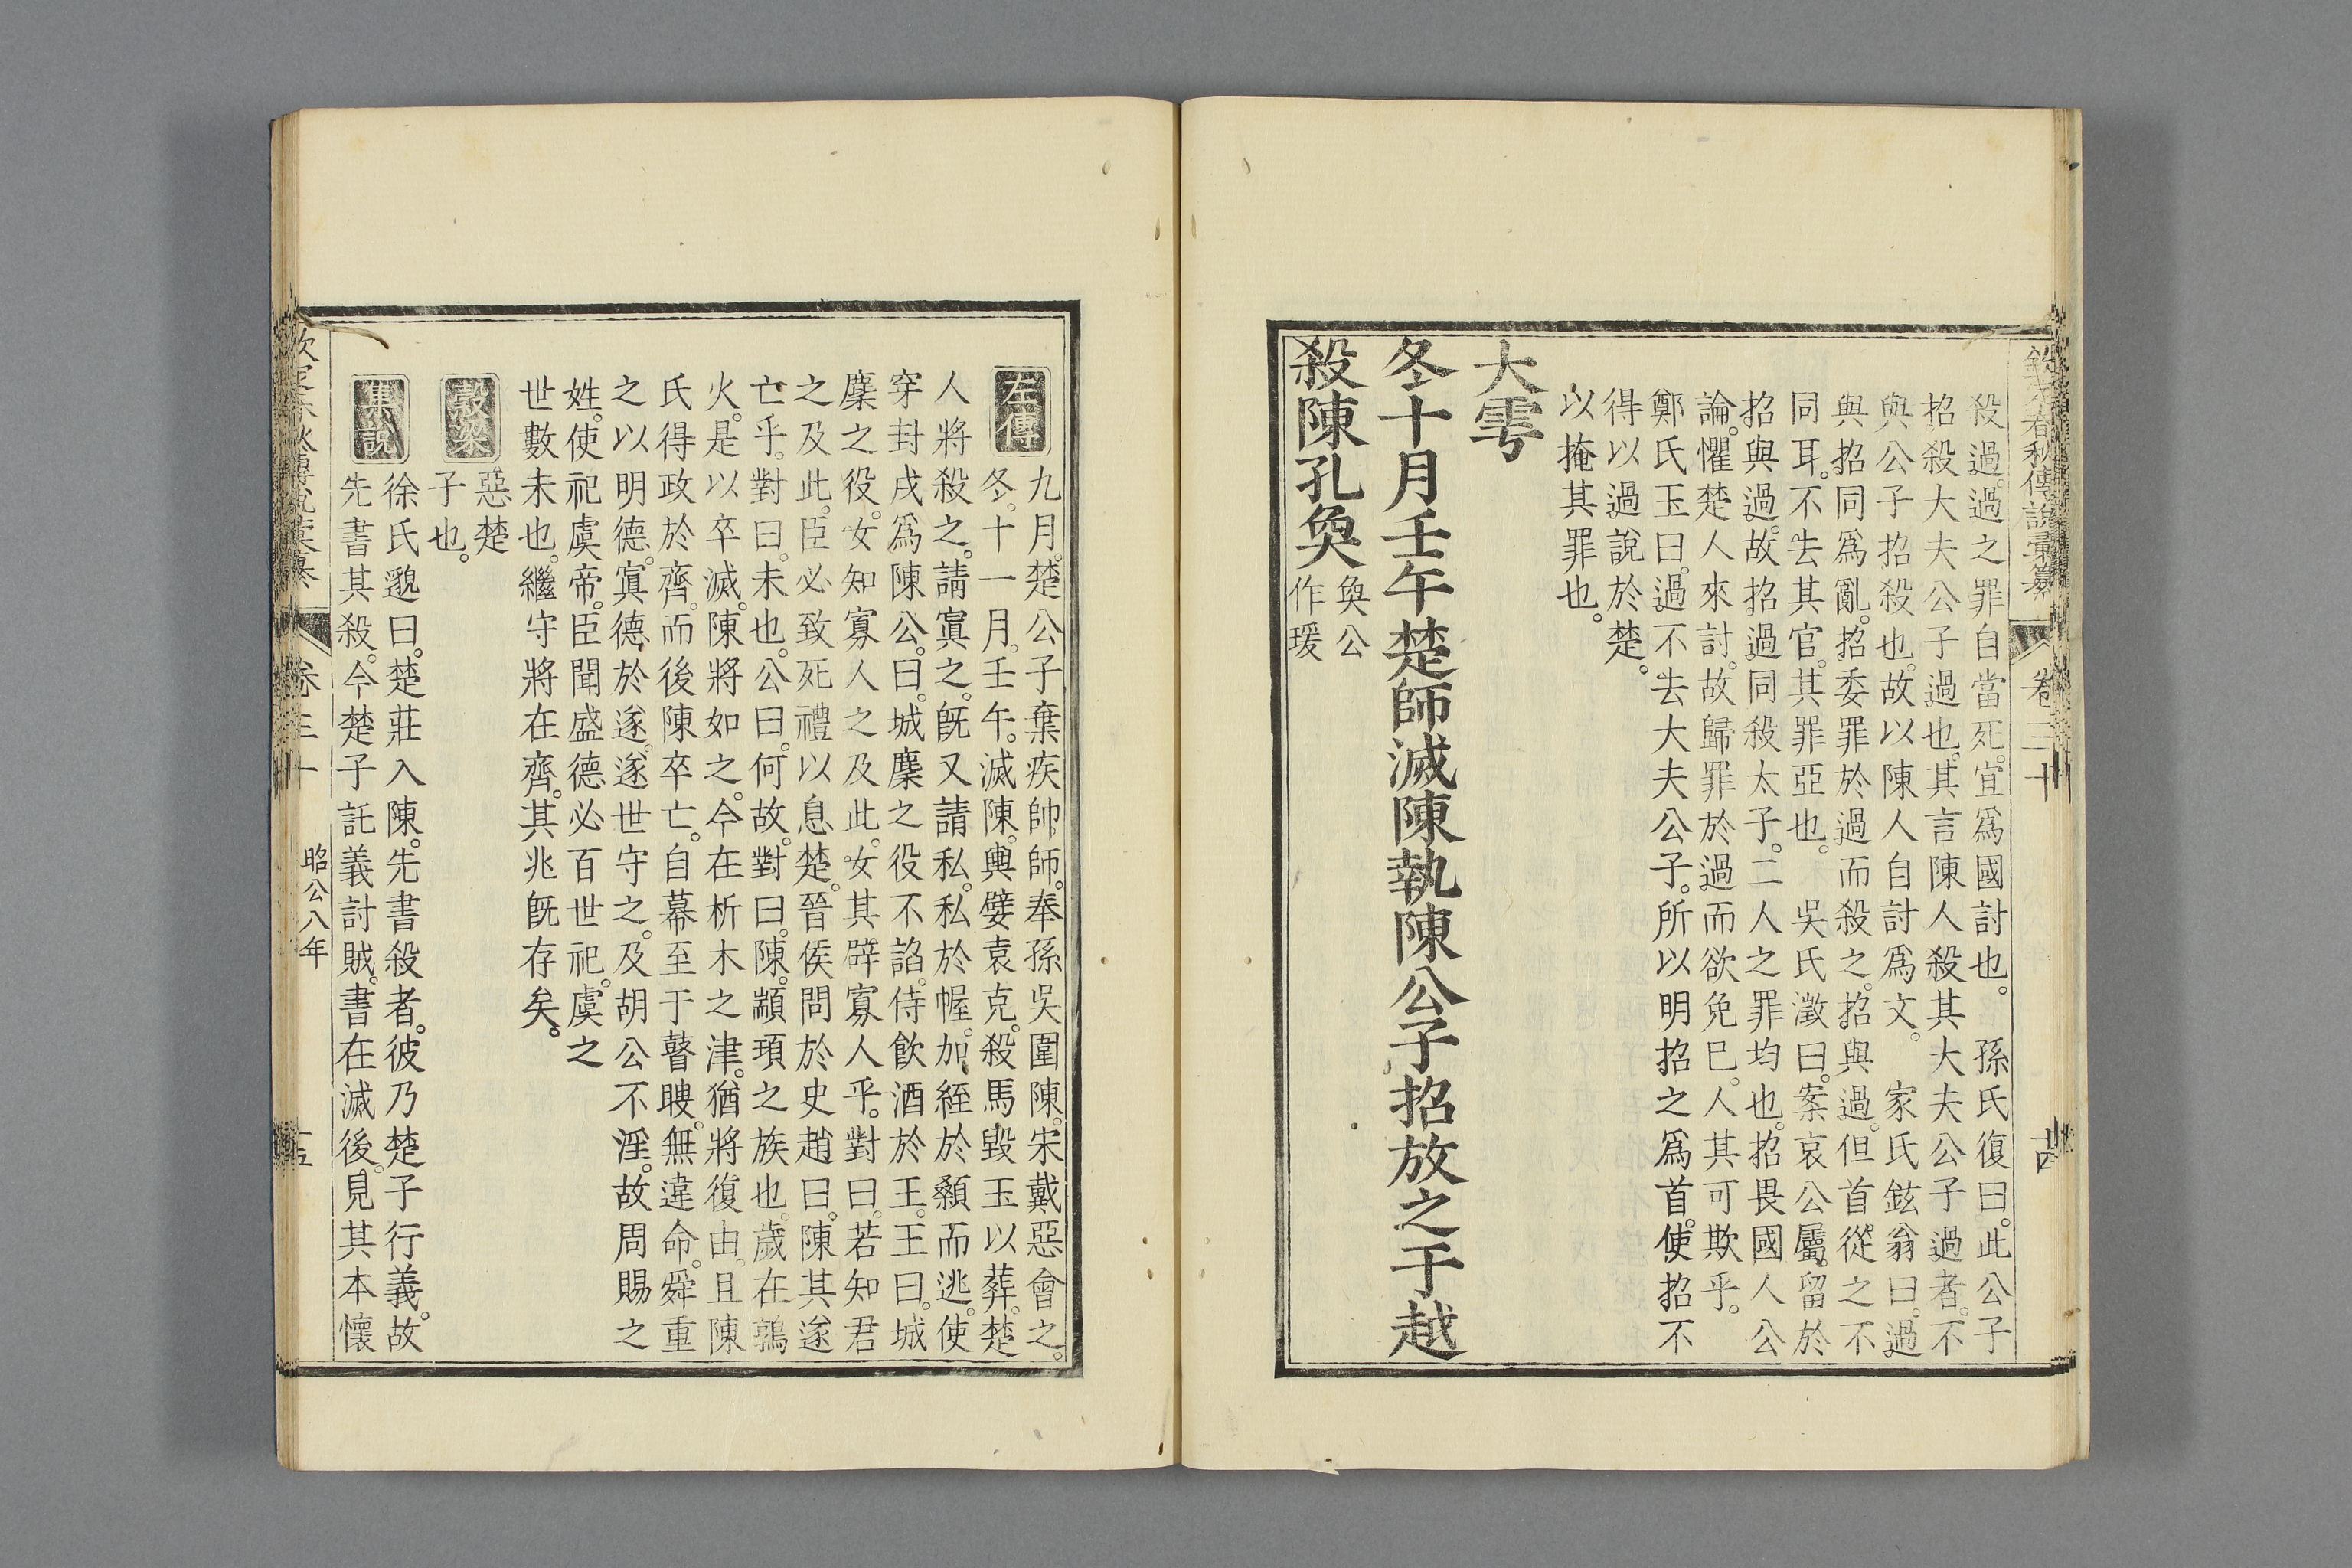 欽定春秋傳說彙纂 卷三十 十四
殺過。過之罪自當死。宜爲國討也。 孫氏復曰。此公子
招殺大夫公子過也。其言陳人殺其大夫公子過者。不
與公子招殺也。故以陳人自討爲文。 家氏鉉翁曰。過
與招同爲亂。招委罪於過而殺之。招與過。但首從之不
同耳。不去其官。其罪亞也。 吳氏澂曰。案哀公屬留於
招與過。故招過同殺太子。二人之罪均也。招畏國人公
論。懼楚人來討。故歸罪於過而欲免巳。人其可欺乎。
鄭氏玉曰。過不去大夫公子。所以明招之爲首。使招不
得以過說於楚。
以掩其罪也。
大雩
冬十月壬午楚師滅陳執陳公子招放之于越
殺陳孔奐
奐公
作瑗
左傳
九月。楚公子棄疾帥師。奉孫吳圍陳。宋戴惡會之。
冬。十一月。壬午。滅陳。輿嬖袁克。殺馬毀玉以葬。楚
人將殺之。請寘之。旣又請私。私於幄。加絰於顙而逃。使
穿封戌爲陳公。曰。城麇之役不諂。侍飲酒於王。王曰。城
麇之役。女知寡人之及此。女其辟寡人乎。對曰。若知君
之及此。臣必致死禮以息楚。晉侯問於史趙曰。陳其遂
亡乎。對曰。未也。公曰。何故。對曰。陳。顓頊之族也。歲在鶉
火。是以卒滅。陳將如之。今在析木之津。猶將復由。且陳
氏得政於齊。而後陳卒亡。自幕至于瞽瞍。無違命。舜重
之以明德。寘德於遂。遂世守之。及胡公不淫。故周賜之
姓。使祀虞帝。臣聞盛德必百世祀。虞之
世數未也。繼守將在齊。其兆旣存矣。
穀梁
惡楚
子也。
集說
徐氏邈曰。楚莊入陳。先書殺者。彼乃楚子行義。故
先書其殺。今楚子託義討賊。書在滅後。見其本懷
卷三十 昭公八年